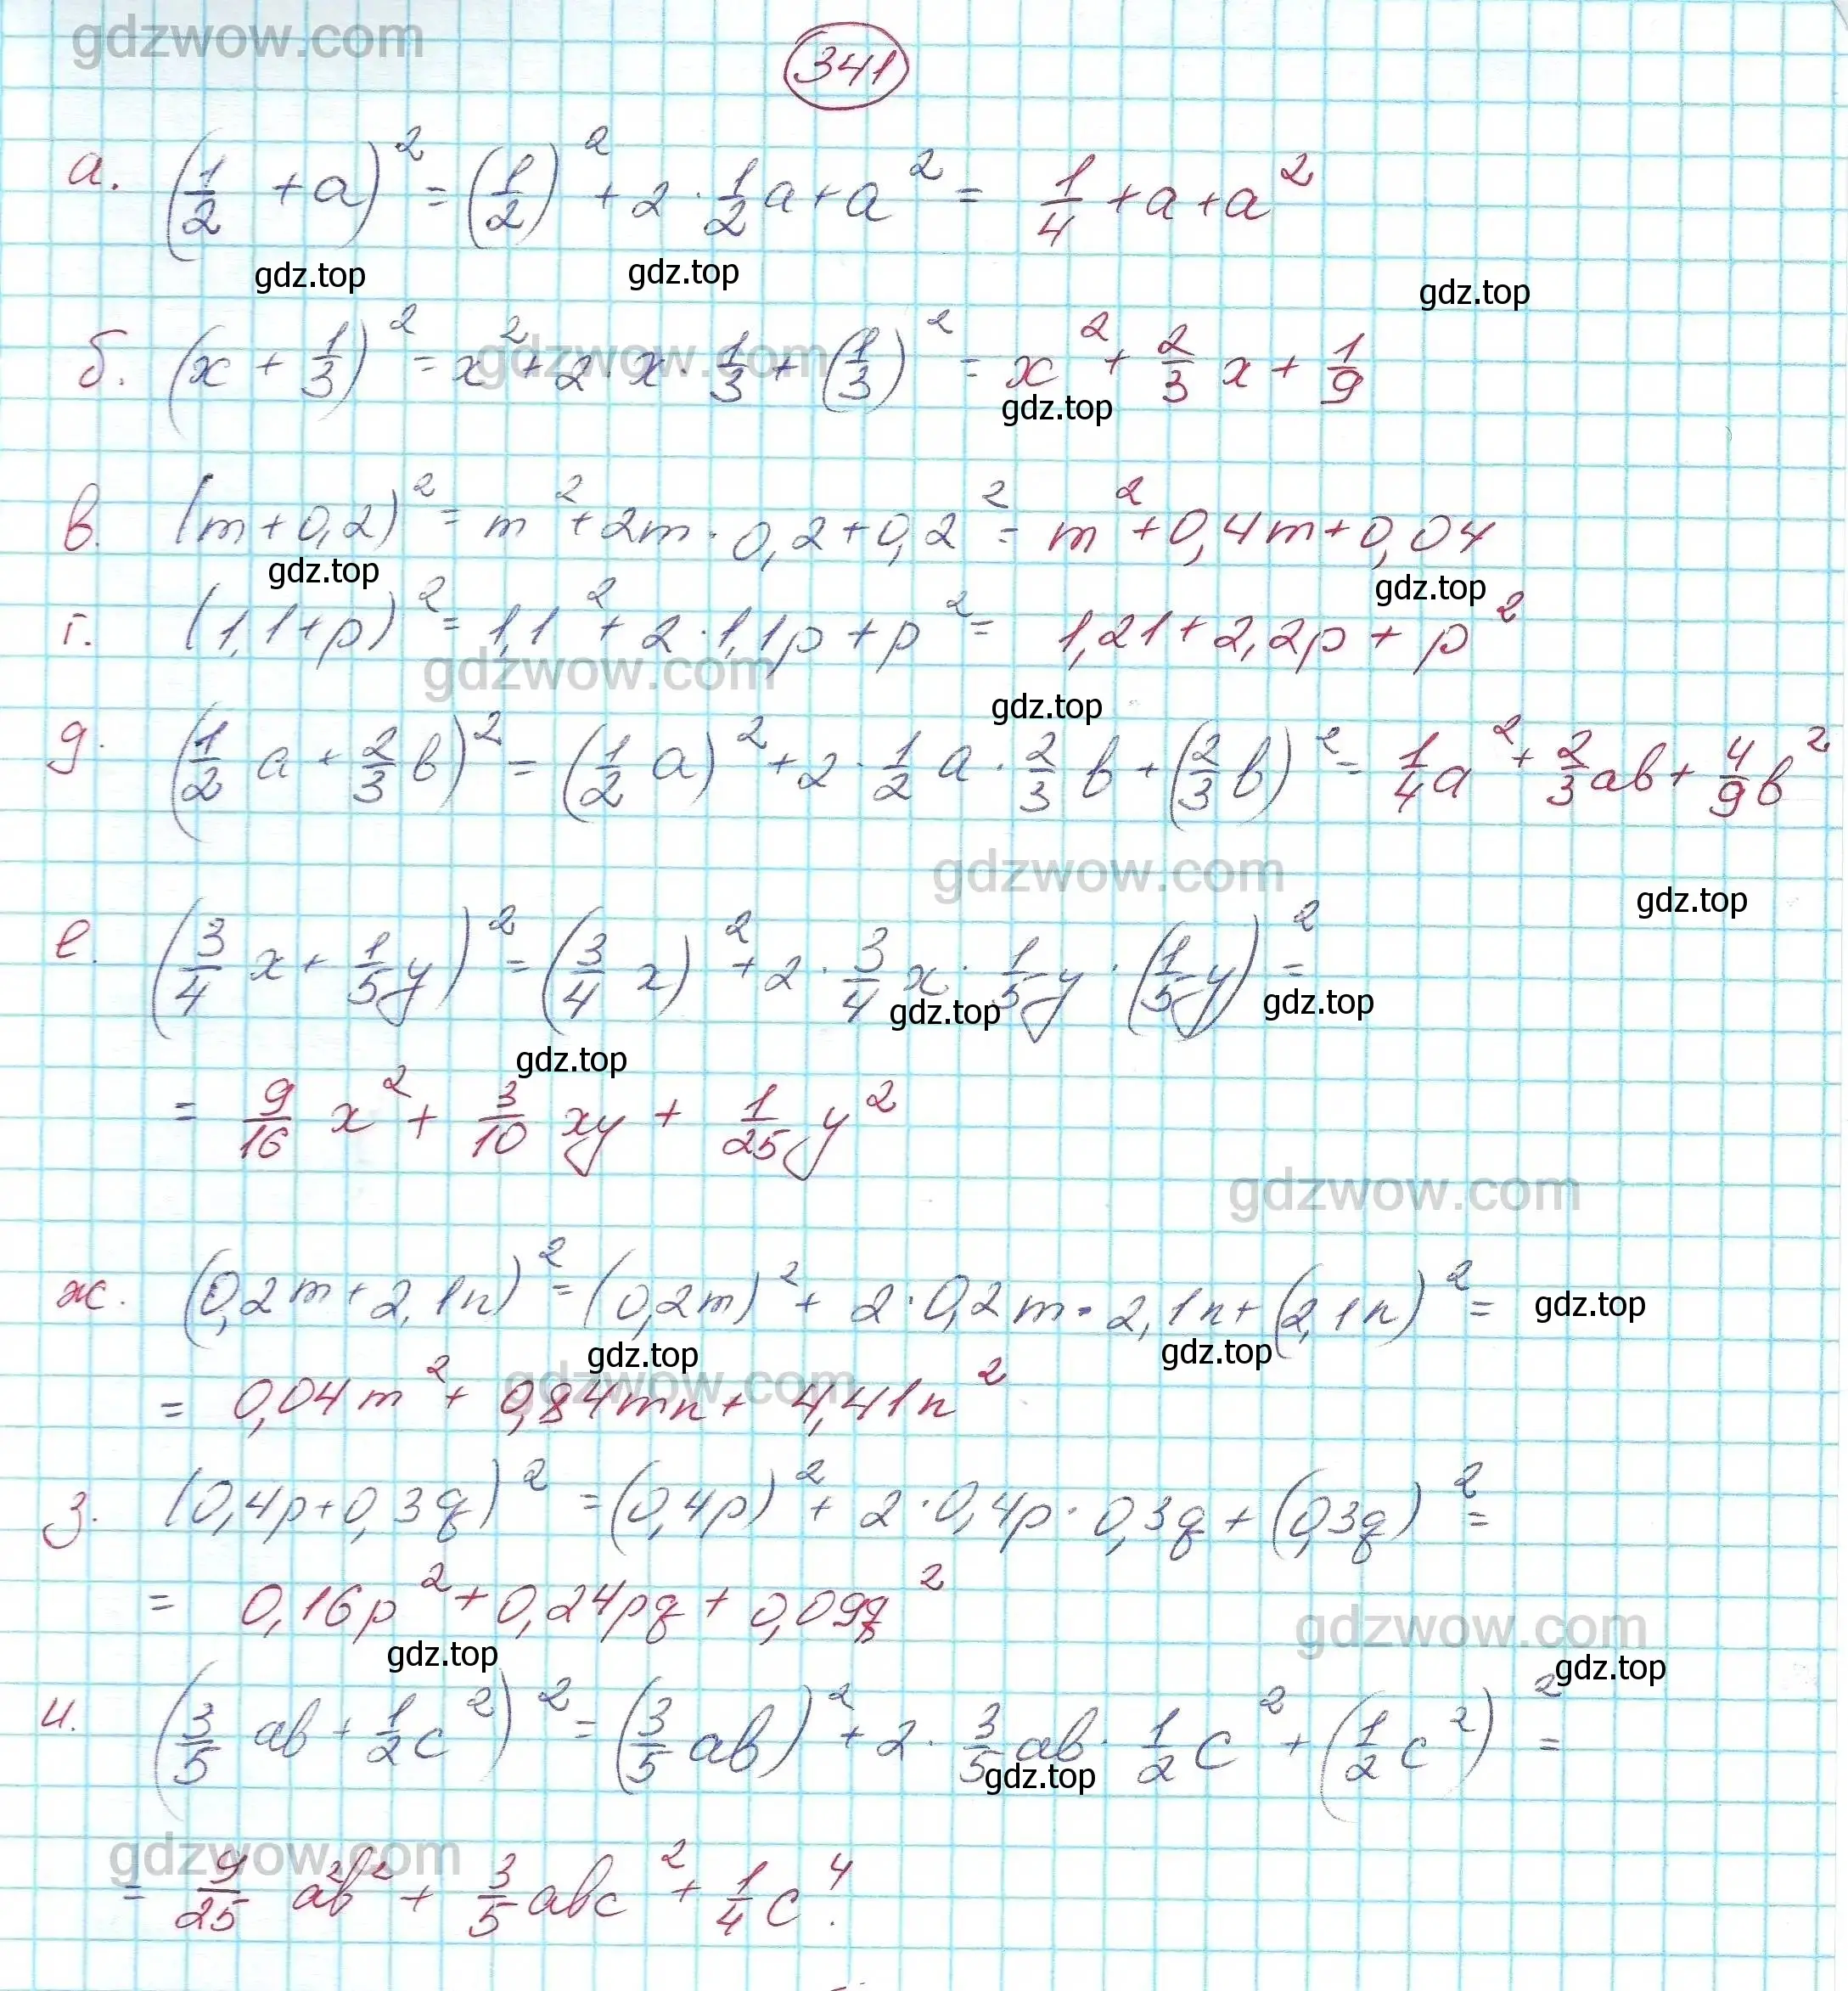 gdzwow.com
341
а. (1/2 + a)² = (1/2)² + 2 · 1/2 a + a² = 1/4 + a + a²
gdz.top gdz.top gdz.top
б. (x + 1/3)² = x² + 2 · x · 1/3 + (1/3)² = x² + 2/3 x + 1/9
gdzwow.com
gdz.top
в. (m + 0,2)² = m² + 2m · 0,2 + 0,2² = m² + 0,4m + 0,04
gdz.top gdz.top
г. (1,1 + p)² = 1,1² + 2 · 1,1p + p² = 1,21 + 2,2p + p²
gdzwow.com
gdz.top
д. (1/2 a + 2/3 b)² = (1/2 a)² + 2 · 1/2 a · 2/3 b + (2/3 b)² = 1/4 a² + 2/3 ab + 4/9 b²
gdzwow.com
gdz.top
е. (3/4 x + 1/5 y)² = (3/4 x)² + 2 · 3/4 x · 1/5 y · (1/5 y)² =
gdz.top gdz.top
gdz.top
= 9/16 x² + 3/10 xy + 1/25 y²
gdzwow.com
ж. (0,2m + 2,1n)² = (0,2m)² + 2 · 0,2m · 2,1n + (2,1n)² =
gdz.top
gdz.top gdz.top
gdzwow.com
= 0,04m² + 0,84mn + 4,41n²
з. (0,4p + 0,3q)² = (0,4p)² + 2 · 0,4p · 0,3q + (0,3q)² =
= 0,16p² + 0,24pq + 0,09q²
gdzwow.com
gdz.top gdz.top
и. (3/5 ab + 1/2 c²)² = (3/5 ab)² + 2 · 3/5 ab · 1/2 c² + (1/2 c²)² =
gdz.top
gdzwow.com
= 9/25 a²b² + 3/5 abc² + 1/4 c⁴.